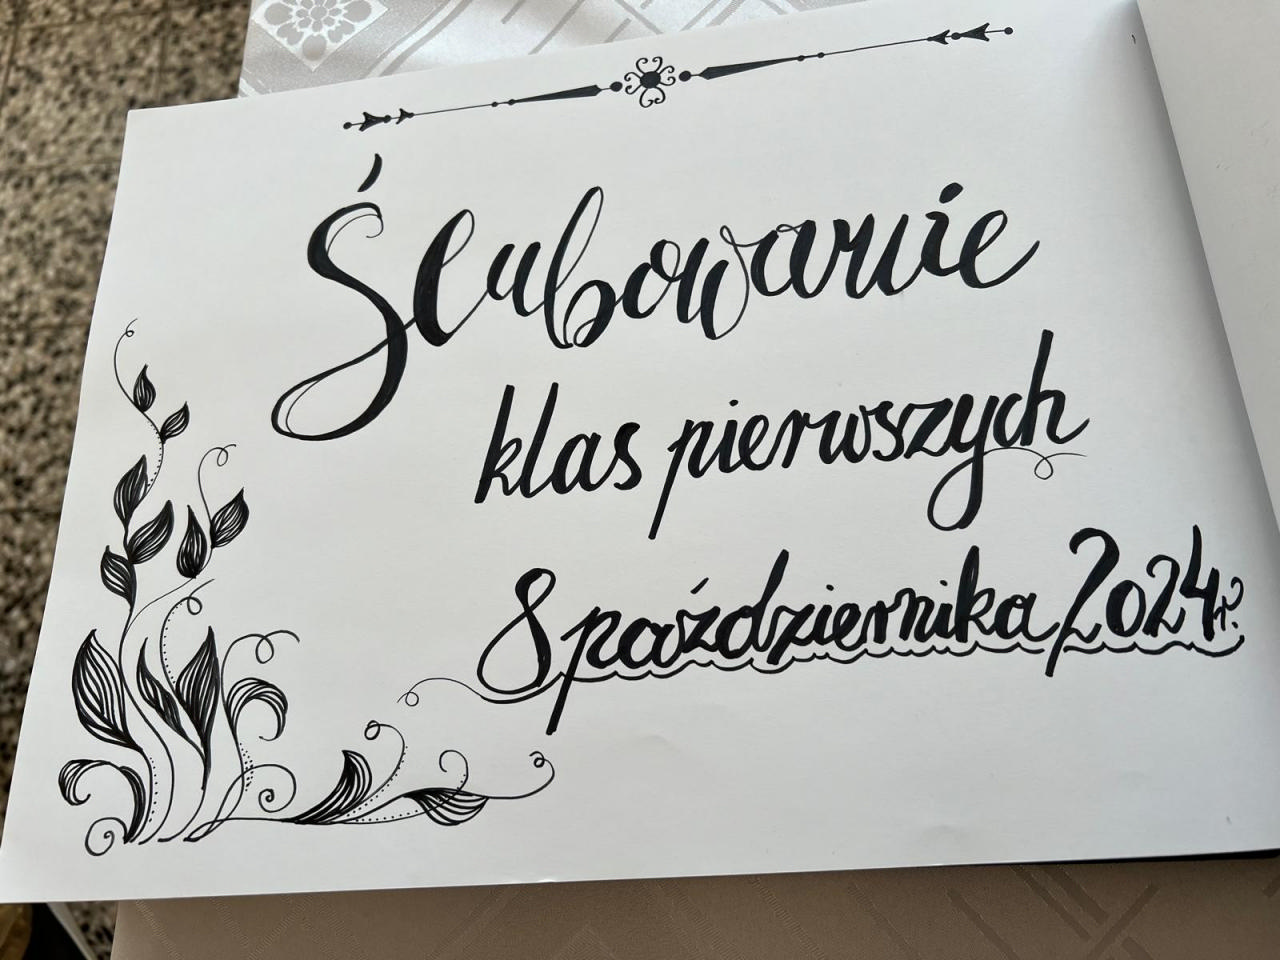 Ślubowanie
klas pierwszych
8 października 2024r.